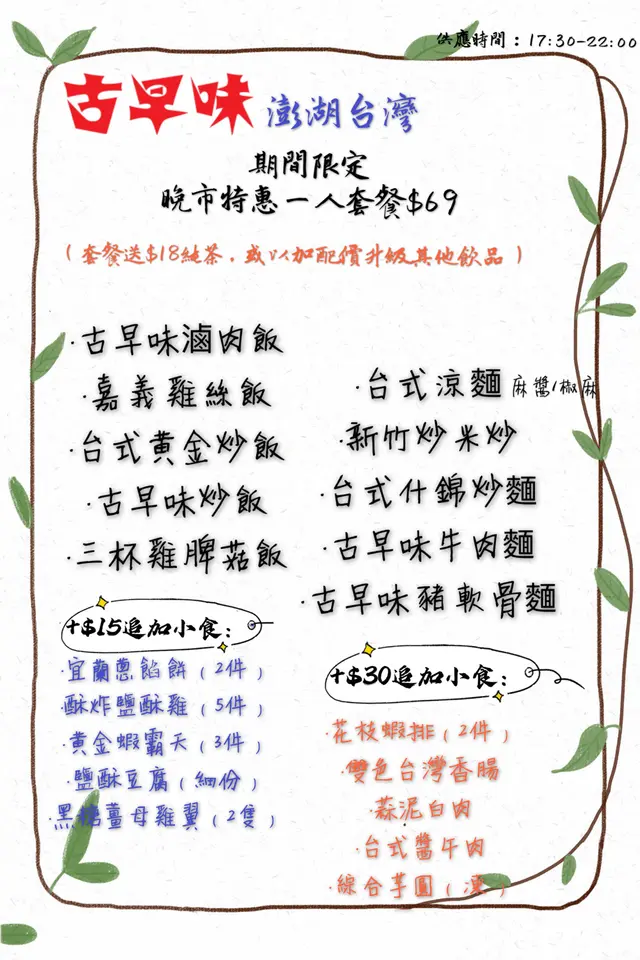 供應時間：17:30-22:00
古早味 澎湖台灣
期間限定
晚市特惠一人套餐$69
（套餐送$18純茶，或以加配價升級其他飲品）
·古早味滷肉飯
·嘉義雞絲飯
·台式黃金炒飯
·古早味炒飯
·三杯雞脾菇飯
·台式涼麵 麻醬/椒麻
·新竹炒米炒
·台式什錦炒麵
·古早味牛肉麵
·古早味豬軟骨麵
+$15追加小食：
·宜蘭蔥餡餅（2件）
·酥炸鹽酥雞（5件）
·黃金蝦霸天（3件）
·鹽酥豆腐（細份）
·黑糖薑母雞翼（2隻）
+$30追加小食：
·花枝蝦排（2件）
·雙色台灣香腸
·蒜泥白肉
·台式醬牛肉
·綜合芋圓（凍）